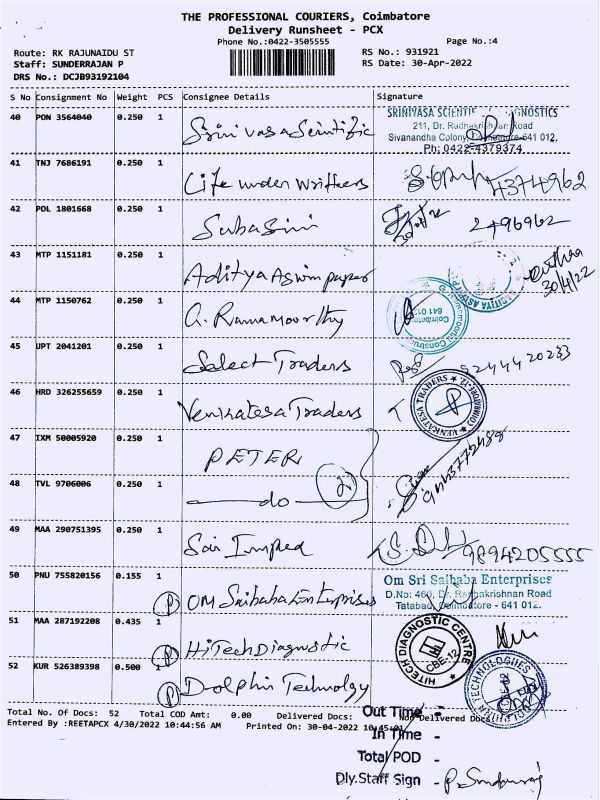 THE PROFESSIONAL COURIERS, Coimbatore
Delivery Runsheet - PCX
Phone No.:0422-3505555 Page No.:4
Route: RK RAJUNAIDU ST RS No.: 931921
Staff: SUNDERRAJAN P RS Date: 30-Apr-2022
DRS No.: DCJB93192104
S No Consignment No Weight PCS Consignee Details Signature
40 PON 3564040 0.250 1 Srinivasa Scintific
SRINIVASA SCIENTIFIC DIAGNOSTICS
211, Dr. Radhakrishnan Road
Sivanandha Colony, Coimbatore-641 012.
Ph: 0422-4379374
41 TNJ 7686191 0.250 1 Life under writters 4374962
42 POL 1801668 0.250 1 Subasini 2496962
43 MTP 1151181 0.250 1 Aditya Aswin paper
30/4/22
44 MTP 1150762 0.250 1 A. Ramamoorthy
Coimbatore
641 012
45 UPT 2041201 0.250 1 Select Traders 9244420233
46 HRD 326255659 0.250 1 Venkatesa Traders
VENKATESA TRADERS ★ COIMBATORE-12 ★
47 IXM 50005920 0.250 1 PETER
48 TVL 9706006 0.250 1 do 2
49 MAA 290751395 0.250 1 Sai Imped 9894205555
50 PNU 755820156 0.155 1 P OM Saibaba Enterprises
Om Sri Saibaba Enterprises
D.No: 460, Dr. Radhakrishnan Road
Tatabad, Coimbatore - 641 012.
51 MAA 287192208 0.435 1 P HiTech Diagnostic
HITECH DIAGNOSTIC CENTRE
CBE-12
52 KUR 526389398 0.500 1 P Dolphin Technolgy
DOLPHIN TECHNOLOGIES
Total No. Of Docs: 52 Total COD Amt: 0.00 Delivered Docs: Non Delivered Docs:
Entered By :REETAPCX 4/30/2022 10:44:56 AM Printed On: 30-04-2022 10:45:01
Out Time -
In Time -
Total POD -
Dly.Staff Sign - P. Sundarraj